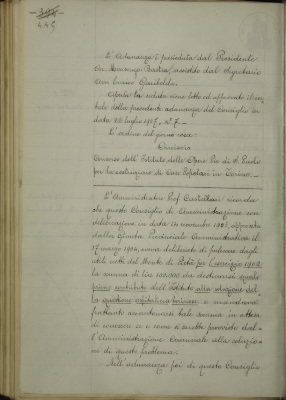 445
L'Adunanza è presieduta dal Presidente
assistito dal Segretario
Aperta la seduta viene letto ed approvato il ver-
bale della precedente adunanza del Consiglio in
data 22 luglio 1907, N. 7.
L'ordine del giorno reca:
Omissis
Concorso dell'Istituto delle Opere Pie di S. Paolo
per la costruzione di Case Popolari in Torino.
L'Amministratore Prof. Castellari ricorda
che questo Consiglio di Amministrazione con
deliberazione in data 14 novembre 1903, approvata
dalla Giunta Provinciale Amministrativa il
17 marzo 1904, aveva deliberato di prelevare dagli
utili netti del Monte di Pietà per l'esercizio 1902
la somma di lire 100.000 da destinarsi quale
primo contributo dell'Istituto alla soluzione del-
la questione e mandava
frattanto accantonarsi tale somma in attesa
di conoscere se e come si sarebbe provvisto dal-
l'Amministrazione Comunale alla soluzio-
ne di questo problema.
Nell'adunanza poi di questo Consiglio